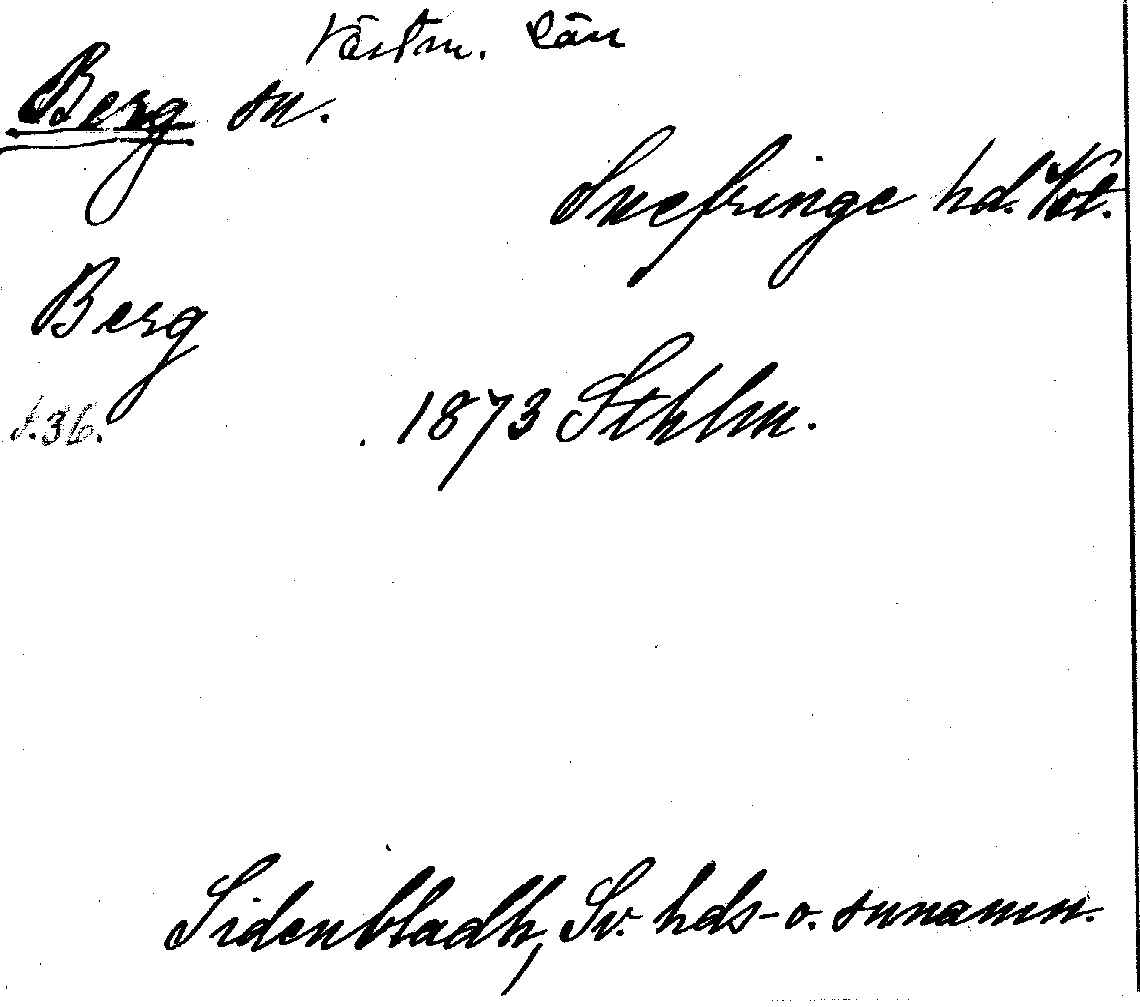 Västm. län
Berg sn.
Snefringe hd. Vstl.
Berg
s.36.
1873 Sthlm.
Sidenbladh, Sv. hds- o. snnamn.